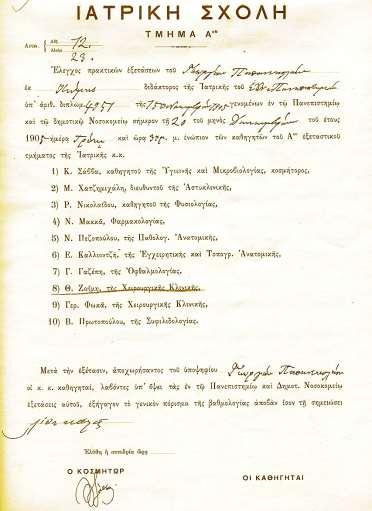 ΙΑΤΡΙΚΗ ΣΧΟΛΗ
ΤΜΗΜΑ Αον
12
23
Ἔλεγχος πρακτικῶν ἐξετάσεων τοῦ Γεωργίου Παπανικολάου
ἐκ Κύμης διδάκτορος τῆς Ἰατρικῆς τοῦ
ὑπ' ἀριθ. διπλώμ. 4951 τῆς γενομένων ἐν τῷ Πανεπιστημίῳ
καὶ τῷ δημοτικῷ Νοσοκομείῳ σήμερον τῇ 20 τοῦ μηνὸς τοῦ ἔτους
ἡμέρᾳ Τρίτῃ καὶ ὥρᾳ μ. ἐνώπιον τῶν καθηγητῶν τοῦ Αου ἐξεταστικοῦ
τμήματος τῆς Ἰατρικῆς κ.κ.
1) Κ. Σάββα, καθηγητοῦ τῆς Ὑγιεινῆς καὶ Μικροβιολογίας, κοσμήτορος,
2) Μ. Χατζημιχάλη, διευθυντοῦ τῆς Ἀστυκλινικῆς,
3) Ρ. Νικολαΐδου, καθηγητοῦ τῆς Φυσιολογίας,
4) Ν. Μακκᾶ, Φαρμακολογίας,
5) Ν. Πεζοπούλου, τῆς Παθολογ. Ἀνατομικῆς,
6) Ε. Καλλιοντζῆ, τῆς Ἐγχειρητικῆς καὶ Τοπογρ. Ἀνατομικῆς,
7) Γ. Γαζέπη, τῆς Ὀφθαλμολογίας,
8) Θ. Ζαΐμη, τῆς Χειρουργικῆς Κλινικῆς,
9) Γερ. Φωκᾶ, τῆς Χειρουργικῆς Κλινικῆς,
10) Β. Πρωτοπούλου, τῆς Συφιλιδολογίας.
Μετὰ τὴν ἐξέτασιν, ἀποχωρήσαντος τοῦ ὑποψηφίου Γεωργίου Παπανικολάου
οἱ κ. κ. καθηγηταί, λαβόντες ὑπ' ὄψει τὰς ἐν τῷ Πανεπιστημίῳ καὶ Δημοτ. Νοσοκομείῳ
ἐξετάσεις αὐτοῦ, ἐξήγαγον τὸ γενικὸν πόρισμα τῆς βαθμολογίας ἀποβὰν ἴσον τῇ σημειώσει
λίαν καλῶς
Ἐλύθη ἡ συνεδρία ὥρᾳ
Ο ΚΟΣΜΗΤΩΡ ΟΙ ΚΑΘΗΓΗΤΑΙ